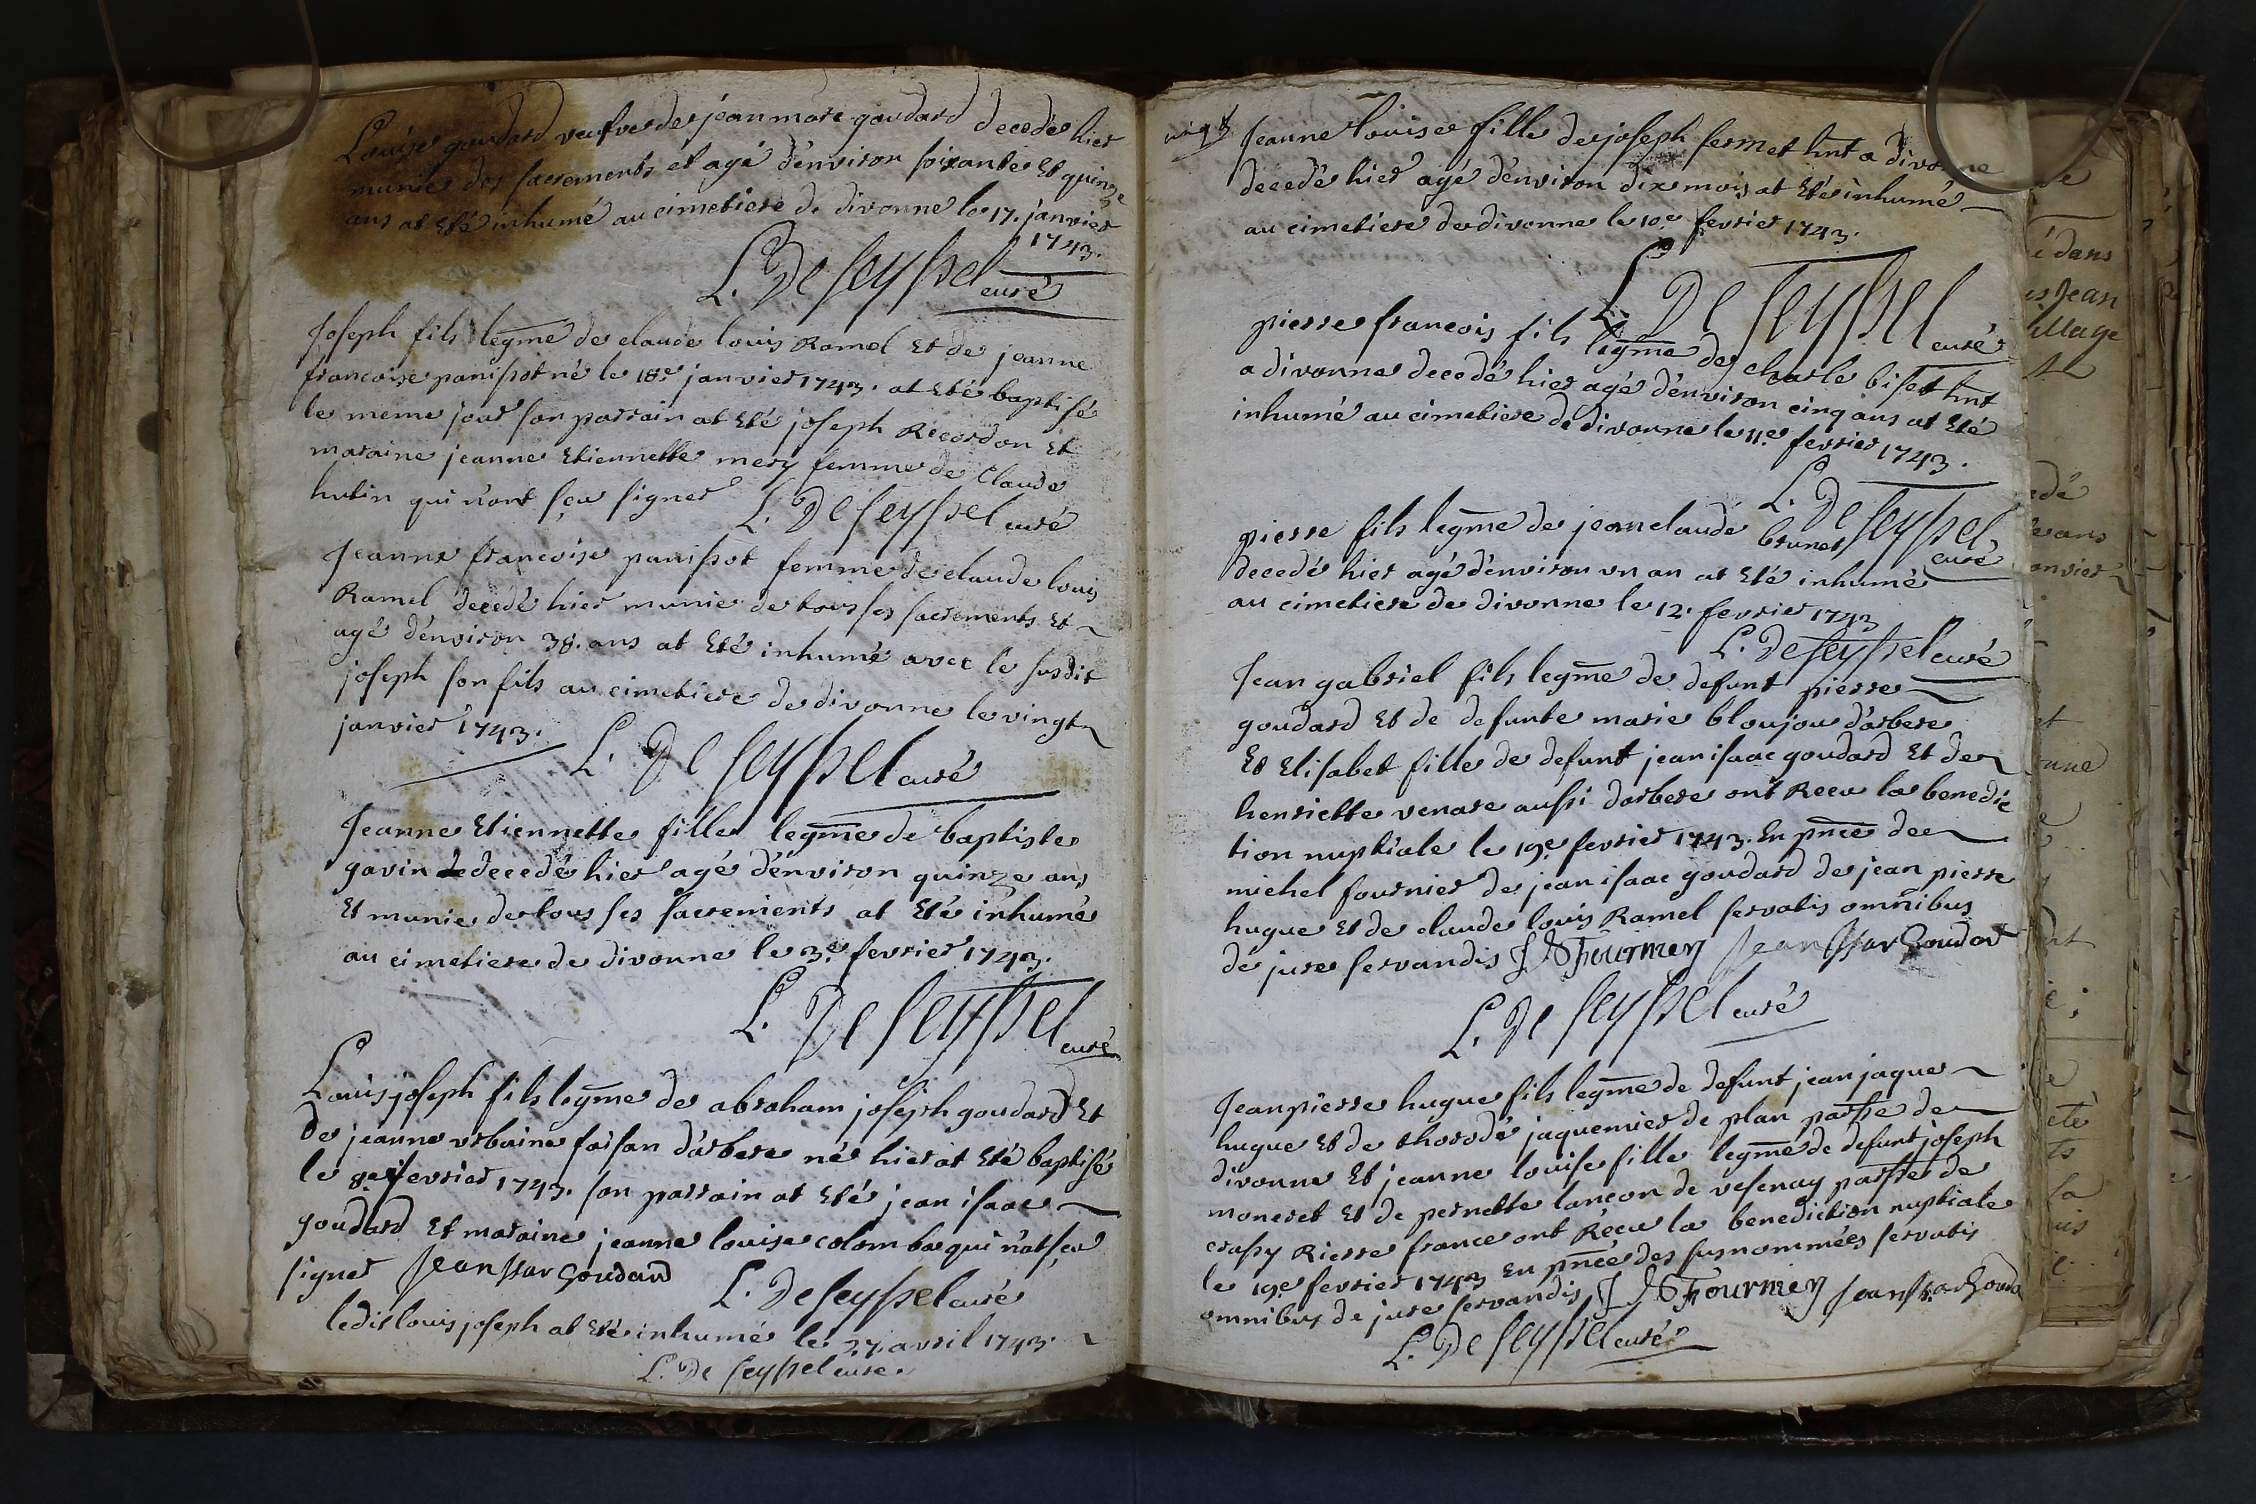 Louise goudard veufve de jean marc goudard decedée hier
munie des sacrements et agé d'environ soixante et quinze
ans at eté inhumé au cimetiere de divonne le 17. janvier
1743.
L. De Seyssel curé
Joseph fils legme de claude louis Ramel et de jeanne
francoise panissot né le 18e janvier 1743. at eté baptisé
le meme jour son parrain at eté joseph Recordon et
maraine jeanne Etiennette mery femme de Claude
hutin qui n'ont sçu signer L. De Seyssel curé
Jeanne francoise panissot femme de claude louis
Ramel decedé hier munie de tous ses sacrements et
agé d'environ 38. ans at eté inhumé avec le susdit
joseph son fils au cimetiere de divonne le vingt
janvier 1743. L. De Seyssel curé
Jeanne Etiennette fille legme de baptiste
gavin decedé hier agé d'environ quinze ans
et munie de tous ses sacrements at eté inhumé
au cimetiere de divonne le 3e fevrier 1743.
L. De Seyssel curé
Louis joseph fils legme de abraham joseph goudard et
de jeanne urbaine faisan d'arbere né hier at eté baptisé
le 8e fevrier 1743. son parrain at eté jean isaac
goudard et maraine jeanne louise colomba qui n'at sçu
signer Jean Isac Goudard L. De Seyssel curé
ledit louis joseph at eté inhumé le 27 avril 1743.
L. De Seyssel cure.
Jeanne louise fille de joseph fermet hnt a divonne
decedé hier agé d'environ dix mois at eté inhumé
au cimetiere de divonne le 10e fevrier 1743.
L. De Seyssel curé
pierre francois fils legme de charle biset hnt
a divonne decedé hier agé d'environ cinq ans at eté
inhumé au cimetiere de divonne le 11e fevrier 1743.
L. De Seyssel curé
pierre fils legme de jean claude brunet
decedé hier agé d'environ un an at eté inhumé
au cimetiere de divonne le 12. fevrier 1743
L. De Seyssel curé
Jean gabriel fils legme de defunt pierre
goudard et de defunte marie bloujou d'arbere
Et Elisabet fille de defunt jean isaac goudard et de
henriette venare aussi darbere ont Receu la benedic
tion nuptiale le 19e fevrier 1743. En pnce de
michel fournier de jean isaac goudard de jean pierre
hugue et de claude louis Ramel servatis omnibus
de jure servandis Fournier Jean Isac Goudard
L. De Seyssel curé
Jean pierre hugue fils legme de defunt jean jaque
hugue et de thorodé jaquemier de plan parsse de
divonne Et jeanne louise fille legme de defunt joseph
moneret et de pernette lancon de vesenay parsse de
crassy Riere france ont Receu la benediction nuptiale
le 19e fevrier 1743 en pnce des susnommées servatis
omnibus de jure servandis Fournier Jean Isac Gouda
L. De Seyssel curé